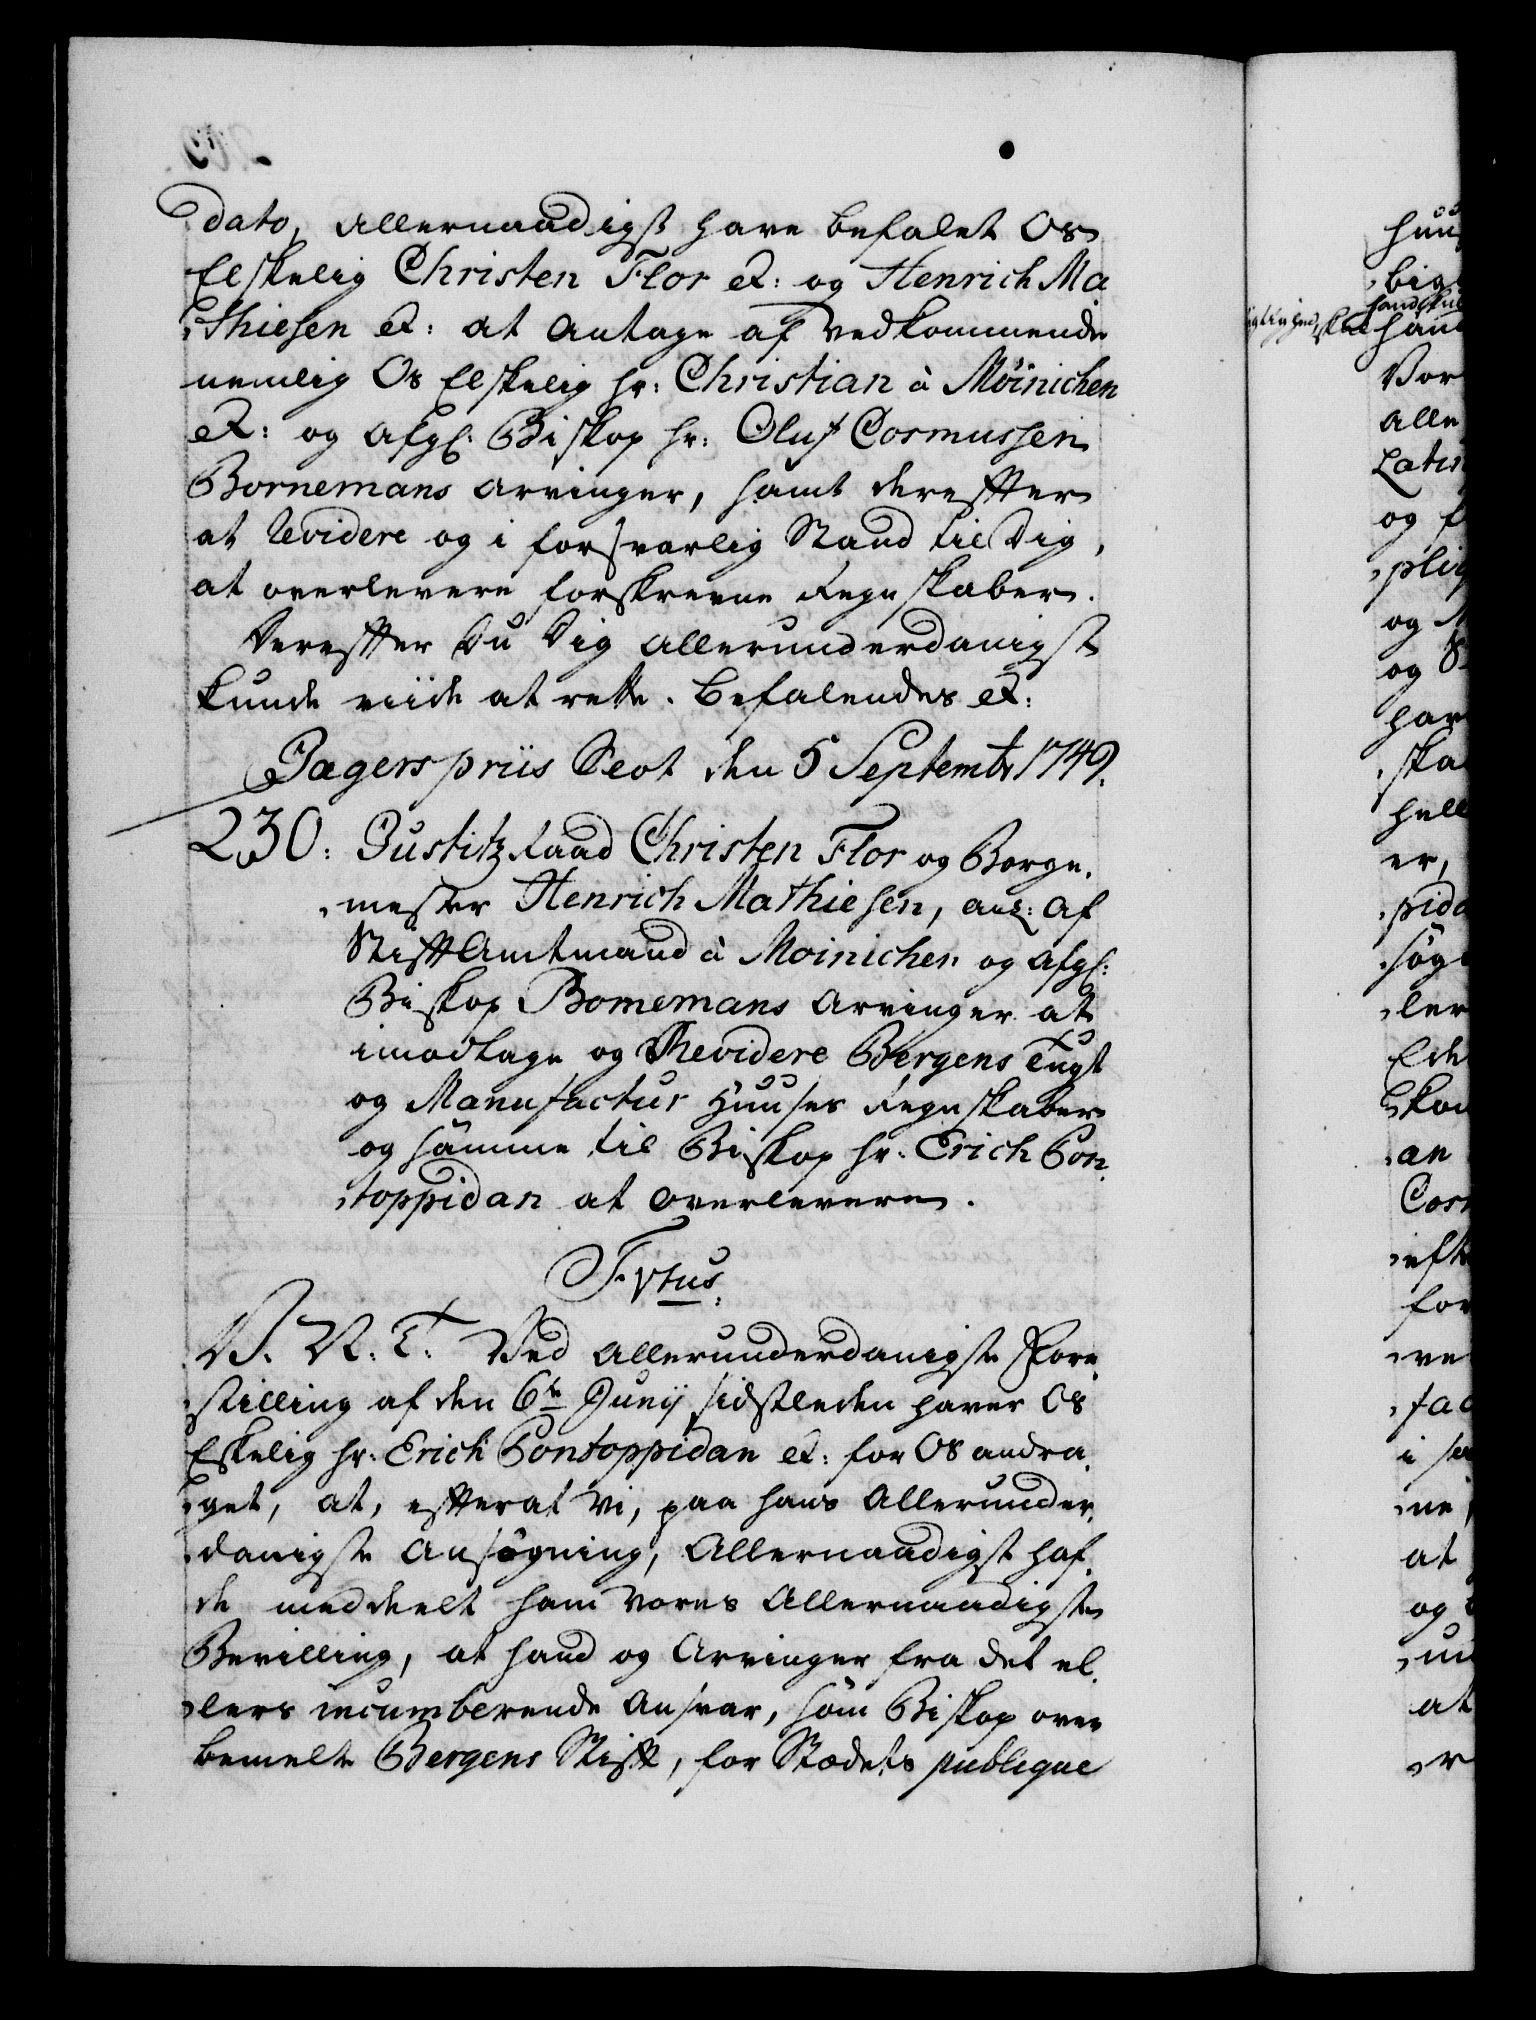 dato, Allernaadigst have befalet Os
Elskelig Christen Flor etc: og Henrich Ma
thiesen etc: at antage af vedkommende
nemlig Os Elskelig hr: Christian à Möinichen
etc: og afg: Biskop hr: Oluf Cosmussen
Bornemans Arvinger, samt derefter
at Revidere og i forsvarlig Stand til Dig,
at overlevere forskrevne Regnskaber.
Derefter Du Dig allerunderdanigst
kunde viide at rette. Befalendes etc:
Jægerspriis Slot den 5 Septembr 1749.
230: Justitz Raad Christen Flor og Borge,
mester Henrich Mathiesen, ang: af
Stift Amtmand à Moinichen og afg:
Biskop Bornemans Arvinger at
imodtage og Revidere Bergens Tugt
og Manufactur Huuses Regnskaber
og samme til Biskop hr: Erich Pon,
toppidan at overlevere.
Frtus.
V. V. T. Ved allerunderdanigste Fore,
stilling af den 6te Junij sidstleden haver Os
Elskelig hr: Erich Pontoppidan etc: for Os andra,
get, at, efterat Vi, paa hans Allerunder,
danigste Ansögning, Allernaadigst haf,
de meddeelt ham Vores Allernaadigste
Bevilling, at hand og Arvinger fra det el,
lers incumberende Ansvar, som Biskop over
bemelte Bergens Stift, for Stædets publique